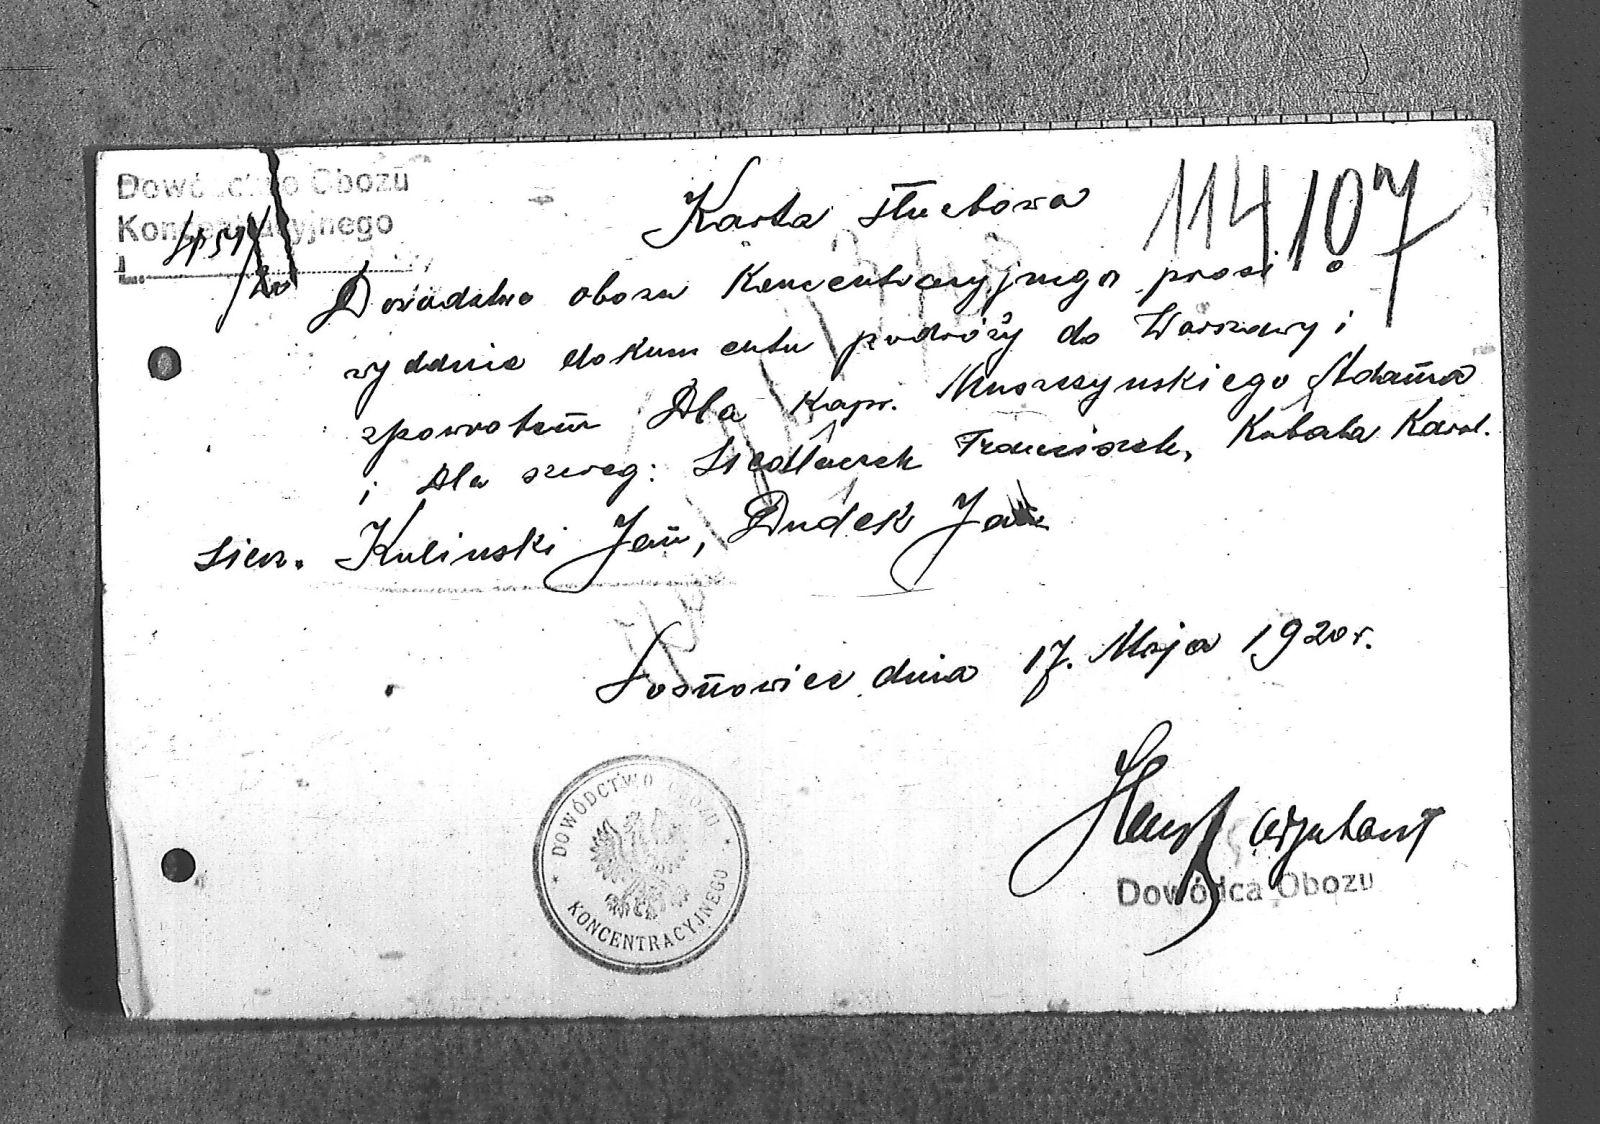 Dowództwo Obozu
Koncentracyjnego
L.
Karta służbowa
114
107
Dowództwo obozu Koncentracyjnego prosi o
wydanie dokumentu podróży do Warszawy i
zpowrotem Dla Kapr. Muszczynskiego Adama
i Dla szereg: Siedlaczek Franciszek, Kubala Karol.
Kulinski Jan, Dudek Jan
Sosnowiec dnia 17. Maja 1920 r.
adjutant
Dowódca Obozu
* DOWÓDCTWO OBOZU *
KONCENTRACYJNEGO